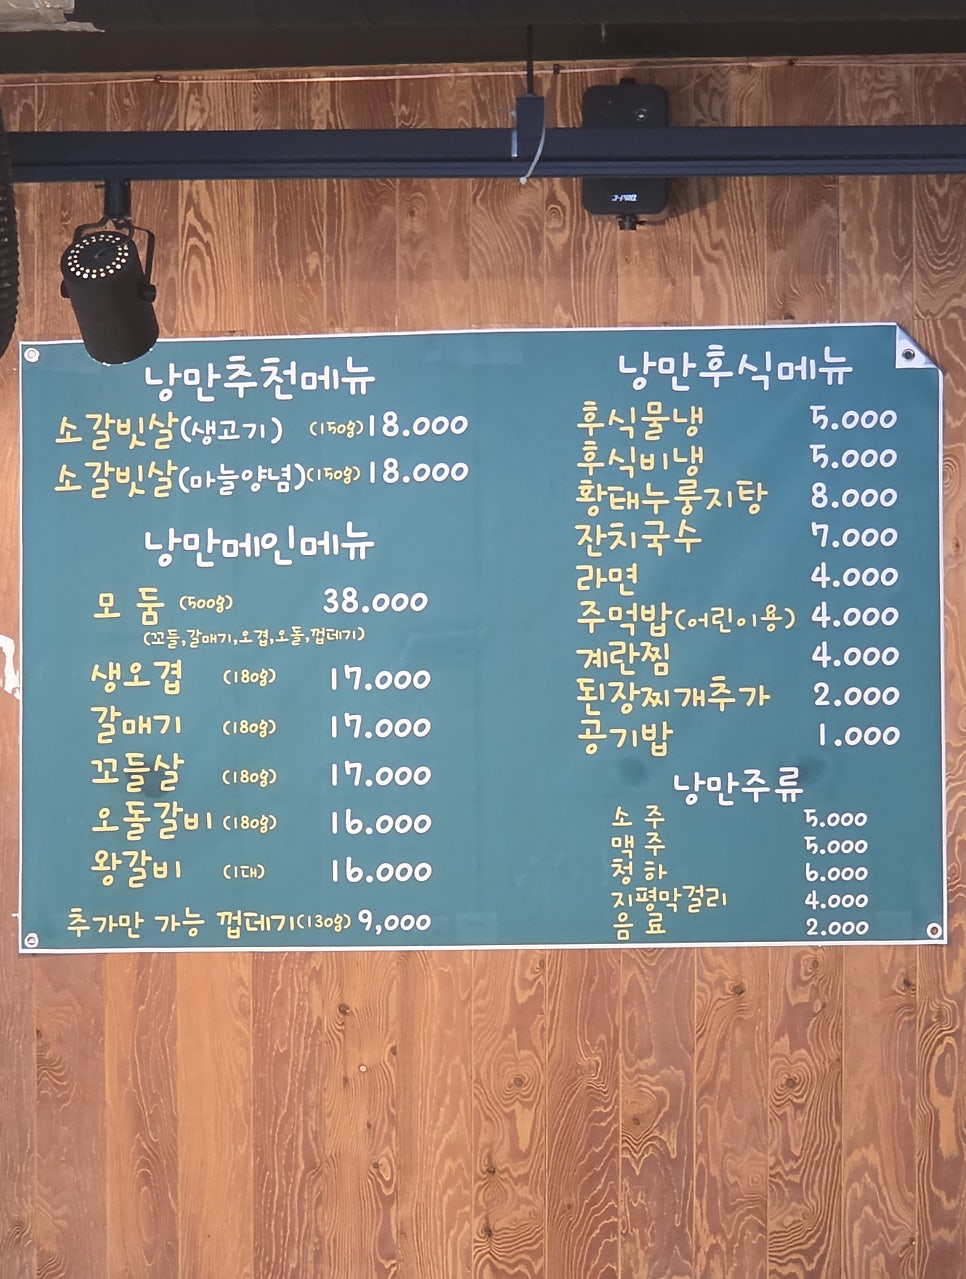 J-PRO
낭만추천메뉴
소갈빗살(생고기) (150g) 18.000
소갈빗살(마늘양념)(150g) 18.000
낭만메인메뉴
모둠 (500g) 38.000
(꼬들,갈매기,오겹,오돌,껍데기)
생오겹 (180g) 17.000
갈매기 (180g) 17.000
꼬들살 (180g) 17.000
오돌갈비 (180g) 16.000
왕갈비 (1대) 16.000
추가만 가능 껍데기(130g) 9,000
낭만후식메뉴
후식물냉 5.000
후식비냉 5.000
황태누룽지탕 8.000
잔치국수 7.000
라면 4.000
주먹밥(어린이용) 4.000
계란찜 4.000
된장찌개추가 2.000
공기밥 1.000
낭만주류
소주 5.000
맥주 5.000
청하 6.000
지평막걸리 4.000
음료 2.000